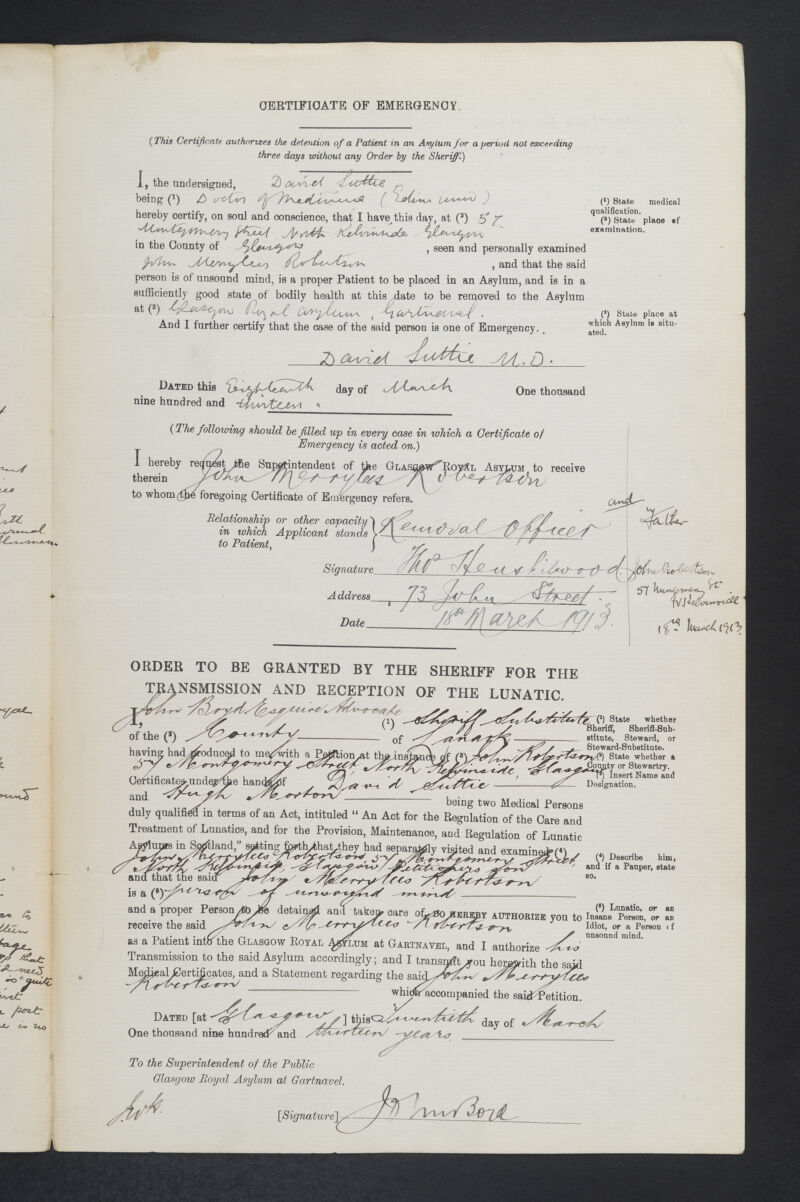 CERTIFICATE OF EMERGENCY.
(This Certificate authorizes the detention of a Patient in an Asylum for a period not exceeding
three days without any Order by the Sheriff.)
I, the undersigned, David Suttie
being (1) Doctor of Medicine (Edin univ)
hereby certify, on soul and conscience, that I have this day, at (2) 57
Montgomery Street North Kelvinside Glasgow
in the County of Glasgow, seen and personally examined
John Merrylees Robertson, and that the said
person is of unsound mind, is a proper Patient to be placed in an Asylum, and is in a
sufficiently good state of bodily health at this date to be removed to the Asylum
at (3) Glasgow Royal Asylum, Gartnavel.
And I further certify that the case of the said person is one of Emergency.
(1) State medical
qualification.
(2) State place of
examination.
(3) State place at
which Asylum is situ-
ated.
David Suttie M.D.
DATED this Eighteenth day of March One thousand
nine hundred and thirteen.
(The following should be filled up in every case in which a Certificate of
Emergency is acted on.)
I hereby request the Superintendent of the GLASGOW ROYAL ASYLUM to receive
therein John Merrylees Robertson
to whom the foregoing Certificate of Emergency refers.
Relationship or other capacity
in which Applicant stands
to Patient, } Removal Officer and
Signature Thos Henshilwood
Address 73 John Street
Date 18th March 1913.
Father
John Robertson
St
N Kelvinside
18th March 1913
ORDER TO BE GRANTED BY THE SHERIFF FOR THE
TRANSMISSION AND RECEPTION OF THE LUNATIC.
I, John Boyd Esquire Advocate (1) Sheriff Substitute
of the (2) County of Lanark
having had produced to me, with a Petition at the instance of (3) John Robertson
57 Montgomery Street, North Kelvinside, Glasgow
Certificates under the hands of David Suttie
and Hugh Morton being two Medical Persons
duly qualified in terms of an Act, intituled "An Act for the Regulation of the Care and
Treatment of Lunatics, and for the Provision, Maintenance, and Regulation of Lunatic
Asylums in Scotland," setting forth that they had separately visited and examined (4)
John Merrylees Robertson, 57 Montgomery Street
North Kelvinside Glasgow, Petitioners son
and that the said John Merrylees Robertson
is a (5) person of unsound mind
and a proper Person to be detained and taken care of, DO HEREBY AUTHORIZE you to
receive the said John Merrylees Robertson
as a Patient into the GLASGOW ROYAL ASYLUM at GARTNAVEL, and I authorize his
Transmission to the said Asylum accordingly; and I transmit you herewith the said
Medical Certificates, and a Statement regarding the said John Merrylees
Robertson which accompanied the said Petition.
(1) State whether
Sheriff, Sheriff-Sub-
stitute, Steward, or
Steward-Substitute.
(2) State whether a
County or Stewartry.
(3) Insert Name and
Designation.
(4) Describe him,
and if a Pauper, state
so.
(5) Lunatic, or an
Insane Person, or an
Idiot, or a Person of
unsound mind.
DATED [at Glasgow] this Twentieth day of March
One thousand nine hundred and thirteen years.
To the Superintendent of the Public
Glasgow Royal Asylum at Gartnavel.
[Signature]